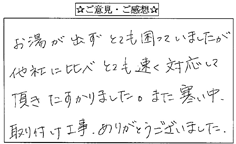 ☆ご意見・ご感想☆
お湯が出ず とても困っていましたが
他社に比べ とても速く対応して
頂きたすかりました。また寒い中、
取り付け工事、ありがとうございました。